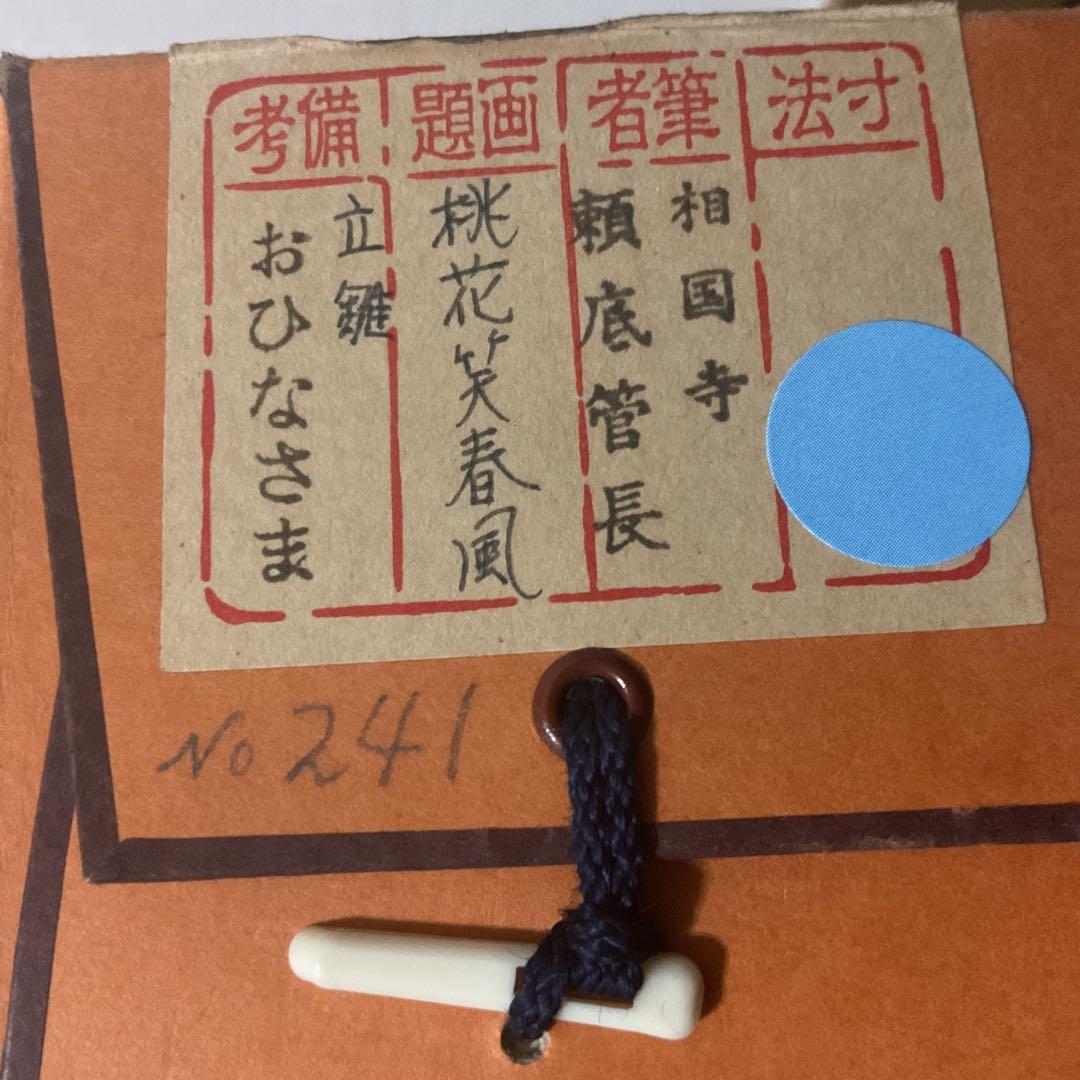 寸法
筆者
相国寺
頼底管長
画題
桃花笑春風
備考
立雛
おひなさま
No 241